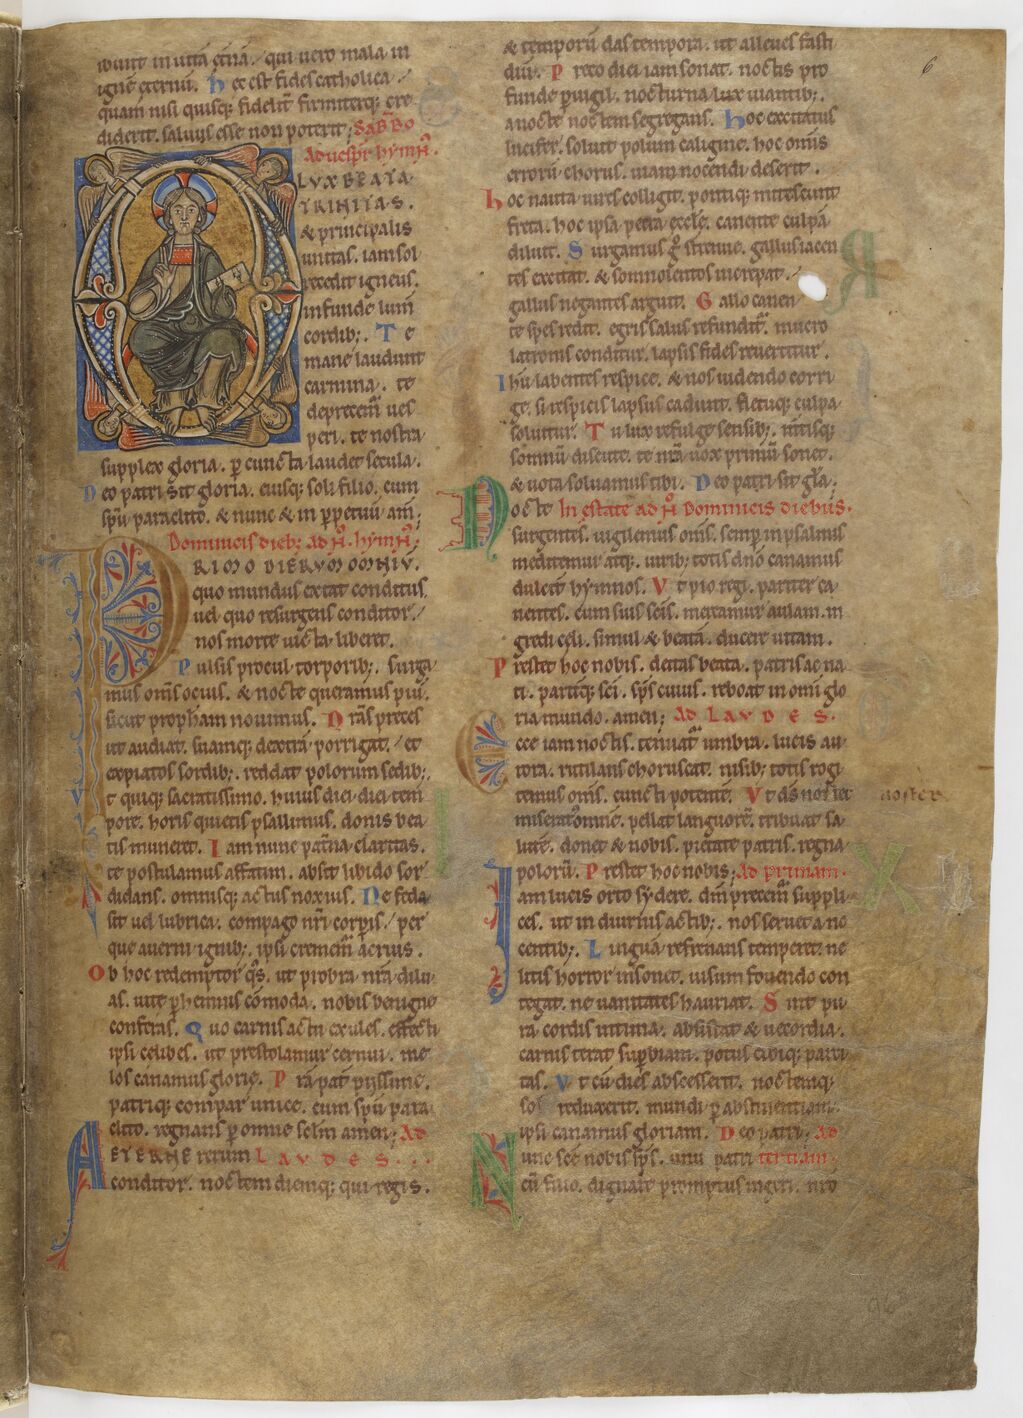 ierunt in uitā et̄nā. qui uero mala in
ignē eternū. Hec est fides catholica.
quam nisi quisq; fidelit̄ firmiterq; cre
diderit. saluus esse non poterit; SABBO
Ad uesp̄r hymn̄.
LVX BEATA
TRINITAS.
& principalis
unitas. iam sol
recedit igneus.
infunde lum̄
cordib;. Te
mane laudent
carmina. te
deprecem̄ ues
peri. te nostra
supplex gloria. p̄ cuncta laudet secula.
Deo patri sit gloria. eiusq; soli filio. cum
sp̄u paraclito. & nunc & in p̄petuū am̄;
Dominicis dieb; ad N̄. hymn̄;
PRIMO DIERVM OMNIV̄.
quo mundus extat conditus
uel quo resurgens conditor
nos morte uicta liberet.
Pulsis procul torporib;. surga
mus om̄s ocius. & nocte queramus piū.
sicut proph̄am nouimus. Nr̄as preces
ut audiat. suamq; dextrā porrigat. et
expiatos sordib;. reddat polorum sedib;.
Ut quiq; sacratissimo. huius diei diei tem
pore. horis quietis psallimus. donis bea
tis muneret. Iam nunc pat̄na claritas.
te postulamus affatim. absit libido sor
didans. omnisq; actus noxius. Ne feda
sit uel lubrica. compago nr̄i corp̄is. per
que auerni ignib;. ipsi cremem̄ acrius.
Ob hoc redemptor q̄s. ut probra nr̄a dilu
as. uite p̄hennis cōmoda. nobis benigne
conferas. Quo carnis actu exules. effecti
ipsi celibes. ut prestolamur cernui. me
los canamus glorie. Pr̄a pat̄ pijssime.
patriq; compar unice. cum sp̄u para
clito. regnans p̄ omne sclm̄ amen; Ad
AETERNE rerum LAVDES...
conditor. noctem diemq; qui regis.
& temporū das tempora. ut alleues fasti
diū. Preco diei iam sonat. noctis pro
funde p̄uigil. nocturna lux uiantib;.
a nocte noctem segregans. Hoc excitatus
lucifer. soluit polum caligine. hoc om̄is
errorū chorus. uiam nocendi deserit.
Hoc nauta uires colligit. pontiq; mitescunt
freta. hoc ipsa petra eccl̄e. canente culpā
diluit. Surgamus g̊ strenue. gallus iacen
tes excitat. & somnolentos increpat.
gallus negantes arguit. Gallo canen
te spes redit. egris salus refundit̄. mucro
latronis conditur. lapsis fides reuertitur.
Ihū labentes respice. & nos uidendo corri
ge. si respicis lapsus cadunt. fletuq; culpa
soluitur. Tu lux refulge sensib;. mentisq;
somnū discute. te nr̄a uox primū sonet.
& uota soluamus tibi. Deo patri sit gl̄a.
Nocte In estate ad N̄ Dominicis diebus.
surgentes. uigilemus om̄s. semp̄ in psalmis
meditemur atq;. uirib; totis dn̄o canamus
dulcit̄ hymnos. Vt pio regi. pariter ca
nentes. cum suis sc̄is. mereamur aulam. in
gredi celi. simul & beatā. ducere uitam.
Prestet hoc nobis. deitas beata. patris ac na
ti. pariterq; sc̄i. sp̄s cuius. reboat in om̄i glo
ria mundo. amen; Ad LAVDES.
Ecce iam noctis. tenuat̄ umbra. lucis au
rora. rutilans choruscat. nisib; totis rogi
temus om̄s. cuncti potentē. Vt d̄s noster
noster
miserat̄ omnē. pellat languorē. tribuat sa
lutē. donet & nobis. pietate patris. regna
polorū. Prestet hoc nobis; Ad primam.
Iam lucis orto sydere. dm̄ precem̄ suppli
ces. ut in diurnis actib;. nos seruet a no
centib;. Linguā refrenans temperet. ne
litis horror insonet. uisum fouendo con
tegat. ne uanitates hauriat. Sint pu
ra cordis intima. absistat & uecordia.
carnis terat sup̄biam. potus cibiq; parci
tas. Vt cū dies abscesserit. noctemq;
sors reduxerit. mundi p̄ abstinentiam.
ipsi canamus gloriam. Deo patri; Ad
Nunc sc̄e nobis sp̄s. unū patri tertiam.
cū filio. dignare promptus ingeri. nr̄o
6